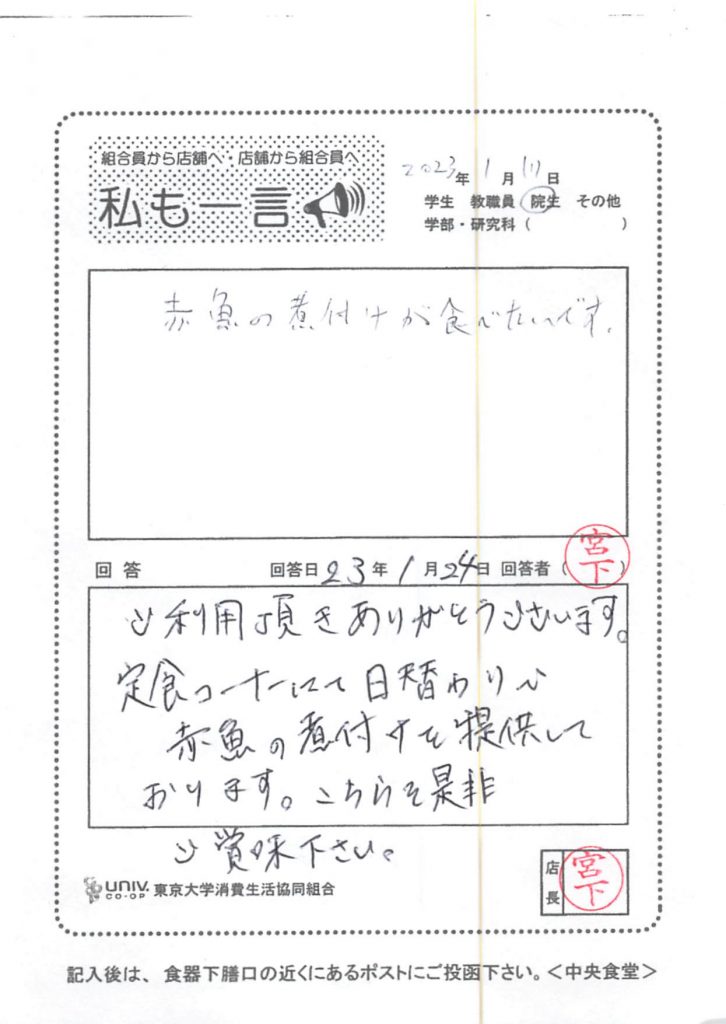 組合員から店舗へ・店舗から組合員へ
私も一言
2023年1月11日
学生 教職員 院生 その他
学部・研究科( )
赤魚の煮付けが食べたいです。
回答 回答日23年1月24日 回答者(宮下)
ご利用頂きありがとうございます。
定食コーナーにて日替わりで
赤魚の煮付けを提供して
おります。こちらを是非
ご賞味下さい。
UNIV. CO-OP 東京大学消費生活協同組合
店長 宮下
記入後は、食器下膳口の近くにあるポストにご投函下さい。<中央食堂>